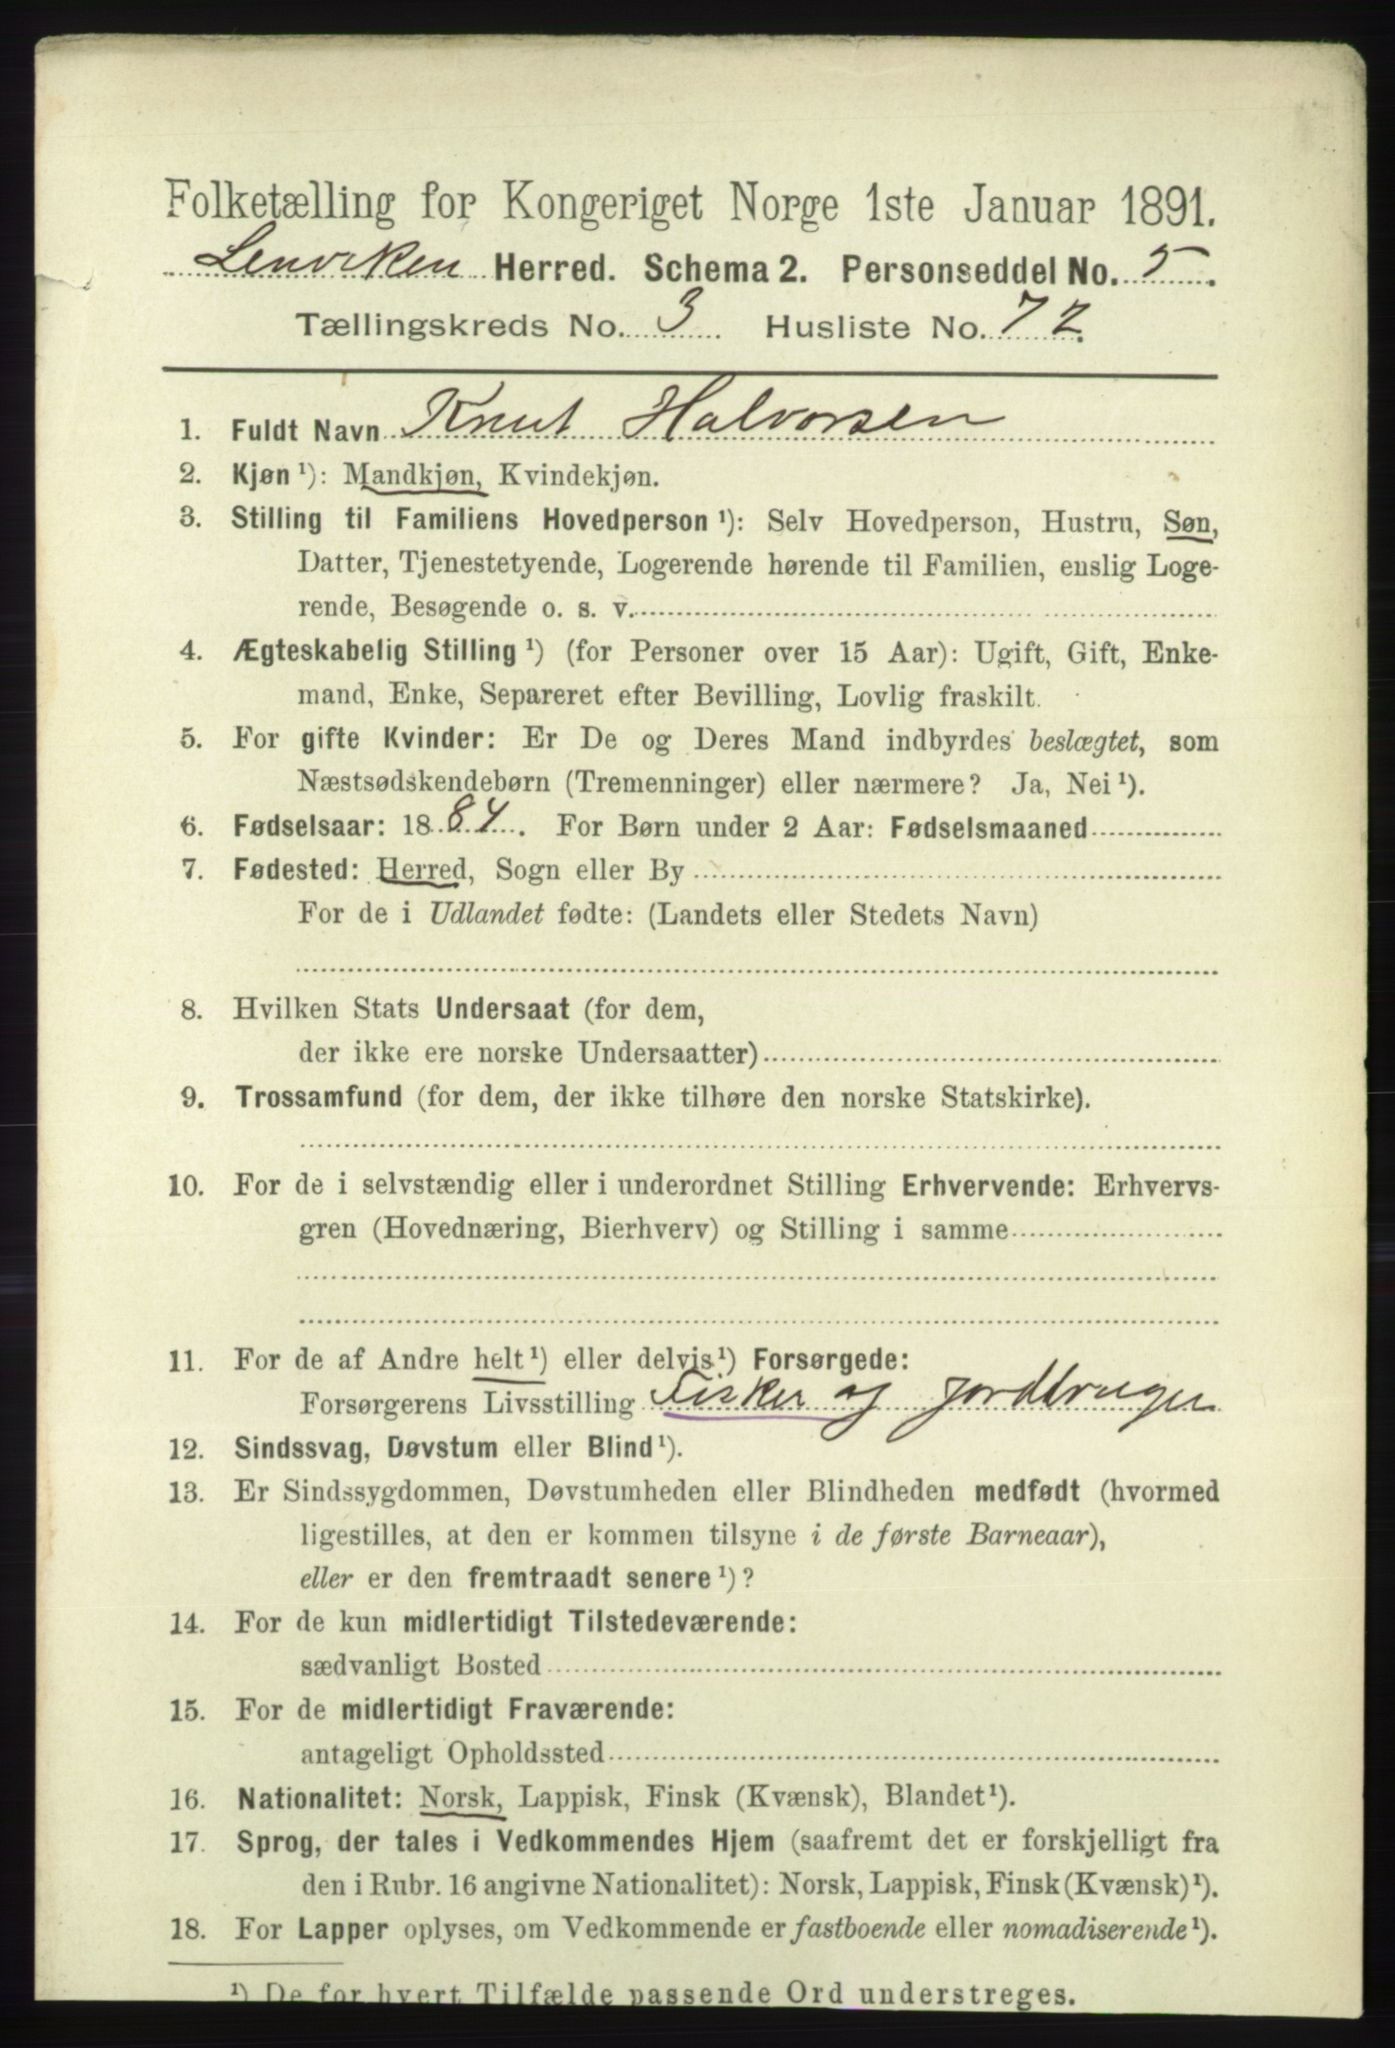 Folketælling for Kongeriget Norge 1ste Januar 1891.
Lenviken Herred. Schema 2. Personseddel No. 5.
Tællingskreds No. 3 Husliste No. 72
1. Fuldt Navn Knut Halvorsen
2. Kjøn ¹): Mandkjøn, Kvindekjøn.
3. Stilling til Familiens Hovedperson ¹): Selv Hovedperson, Hustru, Søn,
Datter, Tjenestetyende, Logerende hørende til Familien, enslig Loge-
rende, Besøgende o. s. v.
4. Ægteskabelig Stilling ¹) (for Personer over 15 Aar): Ugift, Gift, Enke-
mand, Enke, Separeret efter Bevilling, Lovlig fraskilt.
5. For gifte Kvinder: Er De og Deres Mand indbyrdes beslægtet, som
Næstsødskendebørn (Tremenninger) eller nærmere? Ja, Nei ¹).
6. Fødselsaar: 1884. For Børn under 2 Aar: Fødselsmaaned
7. Fødested: Herred, Sogn eller By
For de i Udlandet fødte: (Landets eller Stedets Navn)
8. Hvilken Stats Undersaat (for dem,
der ikke ere norske Undersaatter)
9. Trossamfund (for dem, der ikke tilhøre den norske Statskirke).
10. For de i selvstændig eller i underordnet Stilling Erhvervende: Erhvervs-
gren (Hovednæring, Bierhverv) og Stilling i samme
11. For de af Andre helt ¹) eller delvis ¹) Forsørgede:
Forsørgerens Livsstilling Fisker og jordbruger
12. Sindssvag, Døvstum eller Blind ¹).
13. Er Sindssygdommen, Døvstumheden eller Blindheden medfødt (hvormed
ligestilles, at den er kommen tilsyne i de første Barneaar),
eller er den fremtraadt senere ¹)?
14. For de kun midlertidigt Tilstedeværende:
sædvanligt Bosted
15. For de midlertidigt Fraværende:
antageligt Opholdssted
16. Nationalitet: Norsk, Lappisk, Finsk (Kvænsk), Blandet ¹).
17. Sprog, der tales i Vedkommendes Hjem (saafremt det er forskjelligt fra
den i Rubr. 16 angivne Nationalitet): Norsk, Lappisk, Finsk (Kvænsk) ¹).
18. For Lapper oplyses, om Vedkommende er fastboende eller nomadiserende ¹).
¹) De for hvert Tilfælde passende Ord understreges.